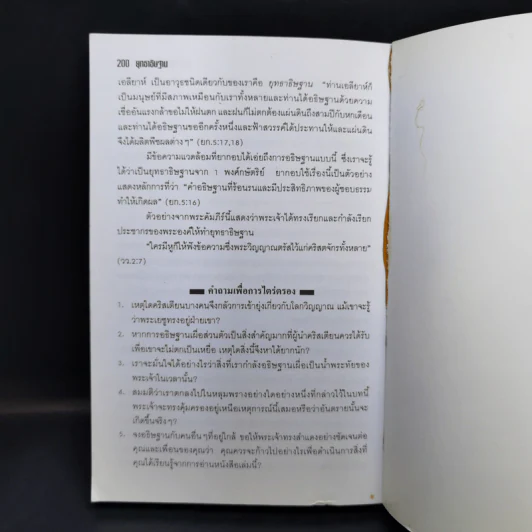 200 ยุทธาธิษฐาน
เอลียาห์ เป็นอาวุธชนิดเดียวกับของเราคือ ยุทธาธิษฐาน "ท่านเอลียาห์ก็
เป็นมนุษย์ที่มีสภาพเหมือนกับเราทั้งหลายและท่านได้อธิษฐานด้วยความ
เชื่ออันแรงกล้าขอไม่ให้ฝนตก และฝนก็ไม่ตกต้องแผ่นดินถึงสามปีกับหกเดือน
และท่านได้อธิษฐานขออีกครั้งหนึ่งและฟ้าสวรรค์ได้ประทานให้และแผ่นดิน
จึงได้ผลิตพืชผลต่างๆ" (ยก.5:17,18)
มีข้อความแวดล้อมที่ยากอบได้เอ่ยถึงการอธิษฐานแบบนี้ ซึ่งเราจะรู้
ได้ว่าเป็นยุทธาธิษฐานจาก 1 พงศ์กษัตริย์ ยากอบใช้เรื่องนี้เป็นตัวอย่าง
แสดงหลักการที่ว่า "คำอธิษฐานที่ร้อนรนและมีประสิทธิภาพของผู้ชอบธรรม
ทำให้เกิดผล" (ยก.5:16)
ตัวอย่างจากพระคัมภีร์นี้แสดงว่าพระเจ้าได้ทรงเรียกและกำลังเรียก
ประชากรของพระองค์ให้ทำยุทธาธิษฐาน
"ใครมีหูก็ให้ฟังข้อความซึ่งพระวิญญาณตรัสไว้แก่คริสตจักรทั้งหลาย"
(วว.2:7)
คำถามเพื่อการไตร่ตรอง
1. เหตุใดคริสเตียนบางคนจึงกลัวการเข้ายุ่งเกี่ยวกับโลกวิญญาณ แม้เขาจะรู้
ว่าพระเยซูทรงอยู่ฝ่ายเขา?
2. หากการอธิษฐานเผื่อส่วนตัวเป็นสิ่งสำคัญมากที่ผู้นำคริสเตียนควรได้รับ
เพื่อเขาจะไม่ตกเป็นเหยื่อ เหตุใดสิ่งนี้จึงหาได้ยากนัก?
3. เราจะมั่นใจได้อย่างไรว่าสิ่งที่เรากำลังอธิษฐานเผื่อเป็นน้ำพระทัยของ
พระเจ้าในเวลานั้น?
4. สมมติว่าเราตกลงไปในหลุมพรางอย่างใดอย่างหนึ่งที่กล่าวไว้ในบทนี้
พระเจ้าจะทรงคุ้มครองอยู่เหนือเหตุการณ์นี้เสมอหรือว่าอันตรายนั้นจะ
เกิดขึ้นจริงๆ?
5. จงอธิษฐานกับคนอื่นๆที่อยู่ใกล้ ขอให้พระเจ้าทรงสำแดงอย่างชัดเจนต่อ
คุณและเพื่อนของคุณว่า คุณควรจะก้าวไปอย่างไรเพื่อดำเนินการสิ่งที่
คุณได้เรียนรู้จากการอ่านหนังสือเล่มนี้?